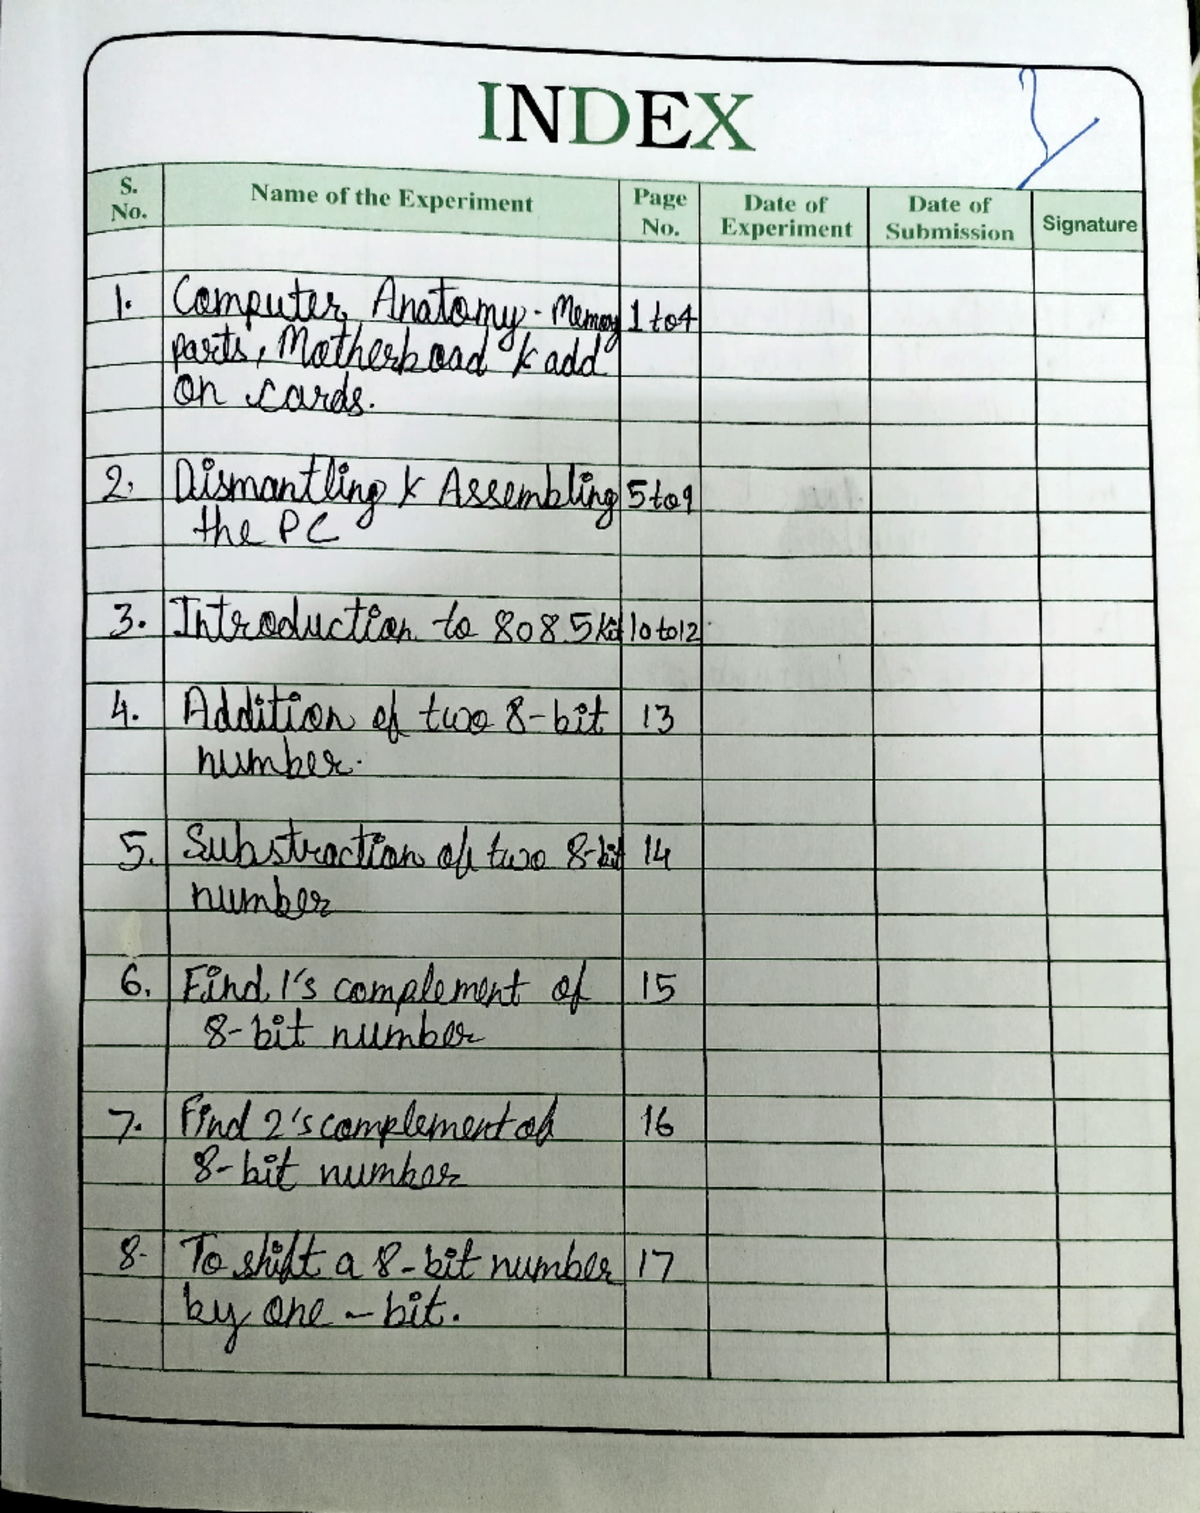 INDEX
S. No. Name of the Experiment Page No. Date of Experiment Date of Submission Signature
1. Computer Anatomy - Memory 1 to 4
parts, Motherboad & add
on cards.
2. Dismantling & Assembling 5 to 9
the PC
3. Introduction to 8085 kit 10 to 12
4. Addition of two 8-bit 13
number.
5. Substraction of two 8-bit 14
number
6. Find 1's complement of 15
8-bit number
7. Find 2's complement of 16
8-bit number
8. To shift a 8-bit number 17
by one-bit.